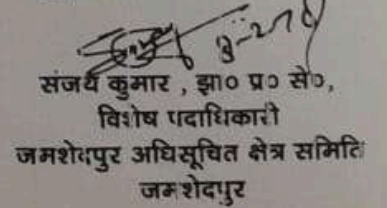 संजय कुमार , झा० प्र० से०,
विशेष पदाधिकारी
जमशेदपुर अधिसूचित क्षेत्र समिति
जमशेदपुर